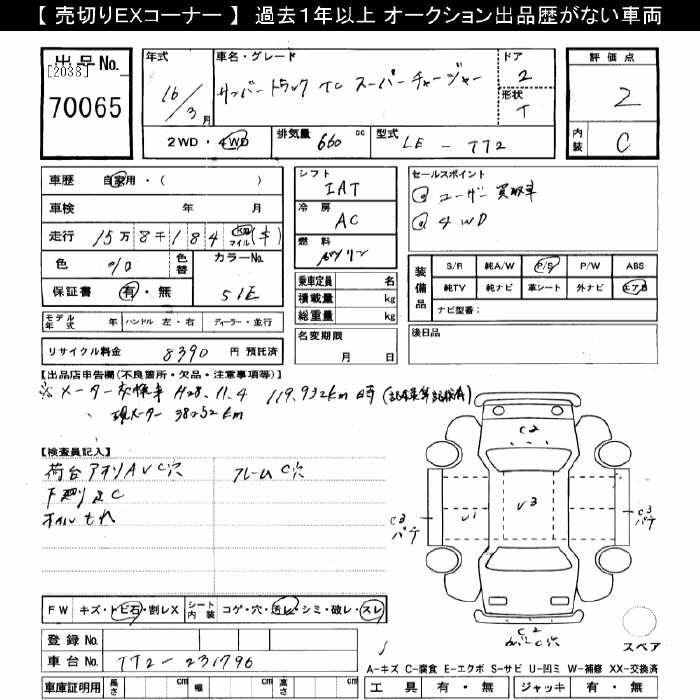 【 売切りEXコーナー 】 過去1年以上 オークション出品歴がない車両
出品No.
[2038]
70065
年式
16/3月
車名・グレード
サンバートラック TC スーパーチャージャー
ドア
2
形状
T
評価点
2
内装
C
2WD・4WD
排気量 660 cc
型式 LE - TT2
車歴 自家用・( )
車検 年 月
走行 15万8千184 km マイル (キ)
色
色替
カラーNo.
51E
保証書 有・無
シフト
IAT
冷房
AC
燃料
ガソリン
乗車定員 名
積載量 kg
総重量 kg
名変期限
月 日
セールスポイント
◎ ユーザー買取車
◎ 4WD
装備品
S/R 純A/W P/S P/W ABS
純TV 純ナビ 革シート 外ナビ エアB
ナビ型番:
後日品
モデル年式 年 ハンドル 左・右 ディーラー・並行
リサイクル料金 8390 円 預託済
【出品店申告欄(不良箇所・欠品・注意事項等)】
※メーター交換車 H28.11.4 119,932km時 (記録簿記載有)
現メーター 38252km
【検査員記入】
荷台アオリAVC穴 フレームC穴
下廻りSC
オイルもれ
C2
C3 パテ
U1
U3
C3 パテ
C2
C穴
スペア
FW キズ・トビ石・割レX
シート内装 コゲ・穴・汚レ・シミ・破レ・スレ
登録No.
車台No. TT2-231796
車庫証明用 長さ cm 幅 cm 高さ cm
A-キズ C-腐食 E-エクボ S-サビ U-凹ミ W-補修 XX-交換済
工具 有・無 ジャッキ 有・無